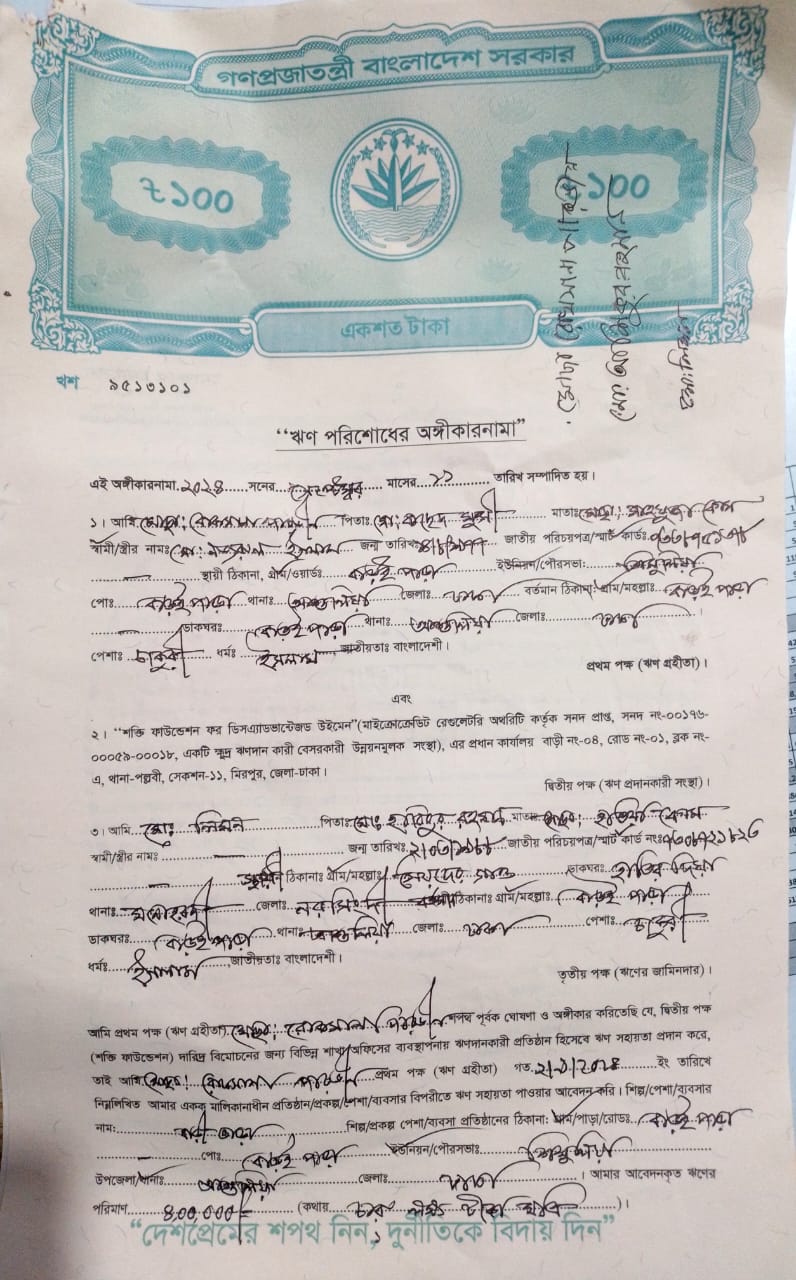 গণপ্রজাতন্ত্রী বাংলাদেশ সরকার
৳১০০
১০০
একশত টাকা
খশ ৯৫১৩১০১
“ঋণ পরিশোধের অঙ্গীকারনামা”
এই অঙ্গীকারনামা ২০২৪ সনের সেপ্টেম্বর মাসের ১১ তারিখ সম্পাদিত হয়।
১। আমি মোছা: রোকসানা পারভীন পিতাঃ মাতাঃ মোছা: বেগম
স্বামী/স্ত্রীর নামঃ মো: ইসলাম জন্ম তারিখঃ জাতীয় পরিচয়পত্র/স্মার্ট কার্ডঃ
স্থায়ী ঠিকানা, গ্রাম/ওয়ার্ডঃ বাড়ই পাড়া ইউনিয়ন/পৌরসভাঃ শিমুলিয়া
পোঃ বাড়ই পাড়া থানাঃ আশুলিয়া জেলাঃ ঢাকা বর্তমান ঠিকানাঃ গ্রাম/মহল্লাঃ বাড়ই পাড়া
ডাকঘরঃ বাড়ই পাড়া থানাঃ আশুলিয়া জেলাঃ ঢাকা
পেশাঃ চাকুরী ধর্মঃ ইসলাম জাতীয়তাঃ বাংলাদেশী।
প্রথম পক্ষ (ঋণ গ্রহীতা)।
এবং
২। “শক্তি ফাউন্ডেশন ফর ডিসএ্যাডভান্টেজড উইমেন”(মাইক্রোক্রেডিট রেগুলেটরি অথরিটি কর্তৃক সনদ প্রাপ্ত, সনদ নং-০০১৭৬-
০০০৫৯-০০০১৮, একটি ক্ষুদ্র ঋণদান কারী বেসরকারী উন্নয়নমূলক সংস্থা), এর প্রধান কার্যালয় বাড়ী নং-০৪, রোড নং-০১, ব্লক নং-
এ, থানা-পল্লবী, সেকশন-১১, মিরপুর, জেলা-ঢাকা।
দ্বিতীয় পক্ষ (ঋণ প্রদানকারী সংস্থা)।
৩। আমি মো: লিমন পিতাঃ মো: হাবিবুর রহমান মাতাঃ মোছা: বেগম
স্বামী/স্ত্রীর নামঃ জন্ম তারিখঃ জাতীয় পরিচয়পত্র/স্মার্ট কার্ড নংঃ
স্থায়ী ঠিকানাঃ গ্রাম/মহল্লাঃ ডাকঘরঃ হাতির দিয়া
থানাঃ মনোহরদী জেলাঃ নরসিংদী বর্তমান ঠিকানাঃ গ্রাম/মহল্লাঃ বাড়ই পাড়া
ডাকঘরঃ বাড়ই পাড়া থানাঃ আশুলিয়া জেলাঃ ঢাকা পেশাঃ চাকুরী
ধর্মঃ ইসলাম জাতীয়তাঃ বাংলাদেশী।
তৃতীয় পক্ষ (ঋণের জামিনদার)।
আমি প্রথম পক্ষ (ঋণ গ্রহীতা) মোছা: রোকসানা পারভীন শপথ পূর্বক ঘোষণা ও অঙ্গীকার করিতেছি যে, দ্বিতীয় পক্ষ
(শক্তি ফাউন্ডেশন) দারিদ্র বিমোচনের জন্য বিভিন্ন শাখা অফিসের ব্যবস্থাপনায় ঋণদানকারী প্রতিষ্ঠান হিসেবে ঋণ সহায়তা প্রদান করে,
তাই আমি মোছা: রোকসানা পারভীন প্রথম পক্ষ (ঋণ গ্রহীতা) গত ইং তারিখে
নিম্নলিখিত আমার একক মালিকানাধীন প্রতিষ্ঠান/প্রকল্প/পেশা/ব্যবসার বিপরীতে ঋণ সহায়তা পাওয়ার আবেদন করি। শিল্প/পেশা/ব্যবসার
নাম: বাড়ী ভাড়া শিল্প/প্রকল্প পেশা/ব্যবসা প্রতিষ্ঠানের ঠিকানা: গ্রাম/পাড়া/রোডঃ বাড়ই পাড়া
পোঃ বাড়ই পাড়া ইউনিয়ন/পৌরসভাঃ শিমুলিয়া
উপজেলা/থানাঃ আশুলিয়া জেলাঃ ঢাকা । আমার আবেদনকৃত ঋণের
পরিমাণ ৪00,000/= (কথায় চার লক্ষ টাকা মাত্র )।
“দেশপ্রেমের শপথ নিন, দুর্নীতিকে বিদায় দিন”
মোছা: রোকসানা পারভীন
মো: লিমন